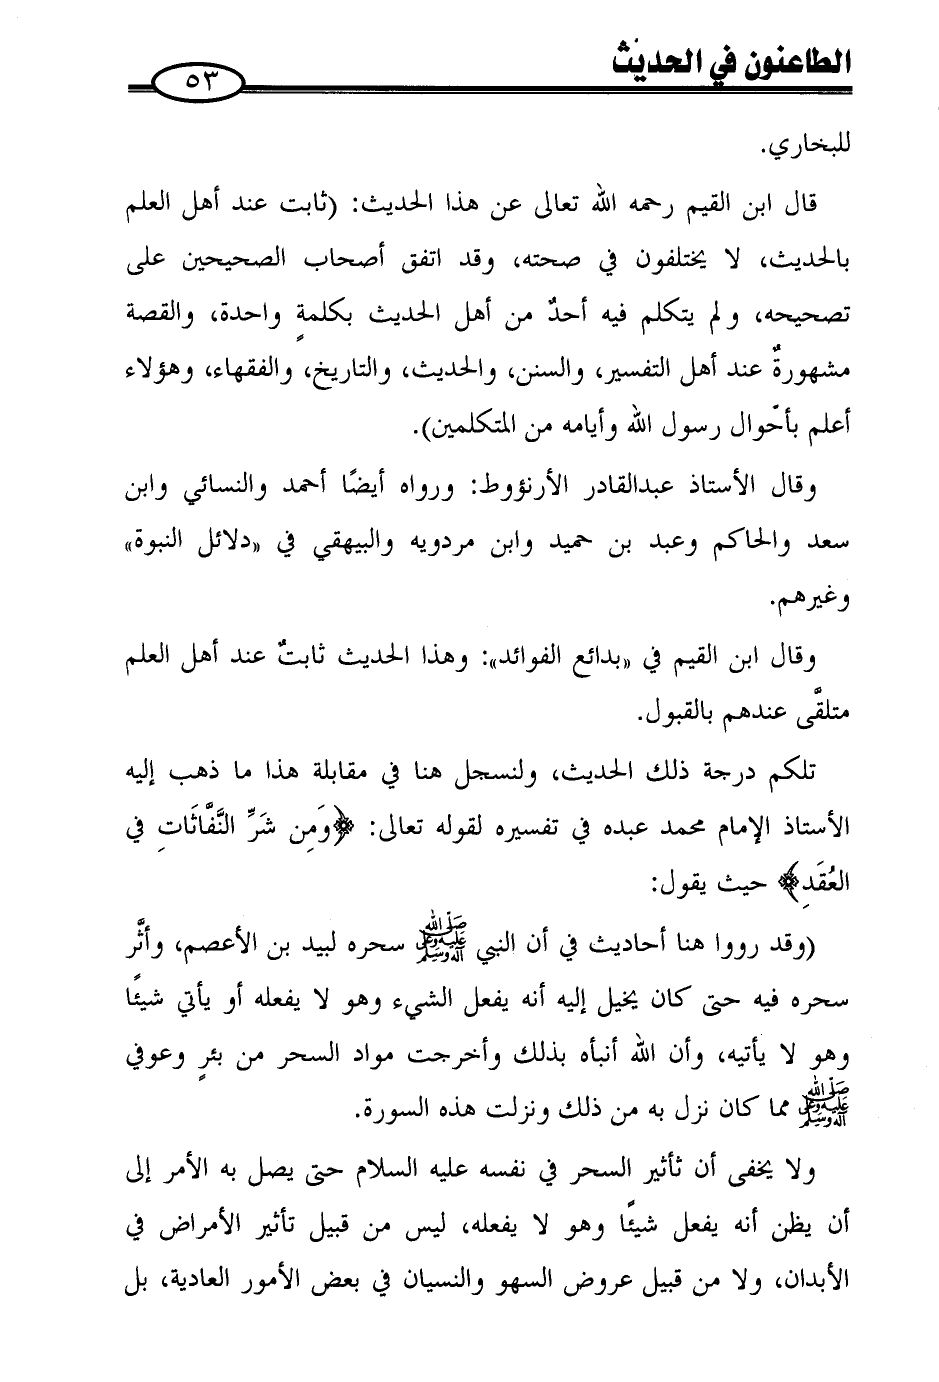 الطاعنون في الحديث
٥٣
للبخاري.
قال ابن القيم رحمه الله تعالى عن هذا الحديث: (ثابت عند أهل العلم
بالحديث، لا يختلفون في صحته، وقد اتفق أصحاب الصحيحين على
تصحيحه، ولم يتكلم فيه أحدٌ من أهل الحديث بكلمةٍ واحدة، والقصة
مشهورةٌ عند أهل التفسير، والسنن، والحديث، والتاريخ، والفقهاء، وهؤلاء
أعلم بأحوال رسول الله وأيامه من المتكلمين).
وقال الأستاذ عبدالقادر الأرنؤوط: ورواه أيضًا أحمد والنسائي وابن
سعد والحاكم وعبد بن حميد وابن مردويه والبيهقي في «دلائل النبوة»
وغيرهم.
وقال ابن القيم في «بدائع الفوائد»: وهذا الحديث ثابتٌ عند أهل العلم
متلقَّى عندهم بالقبول.
تلكم درجة ذلك الحديث، ولنسجل هنا في مقابلة هذا ما ذهب إليه
الأستاذ الإمام محمد عبده في تفسيره لقوله تعالى: ﴿وَمِن شَرِّ النَّفَّاثَاتِ فِي
العُقَدِ﴾ حيث يقول:
(وقد رووا هنا أحاديث في أن النبي ﷺ سحره لبيد بن الأعصم، وأثَّر
سحره فيه حتى كان يخيل إليه أنه يفعل الشيء وهو لا يفعله أو يأتي شيئًا
وهو لا يأتيه، وأن الله أنبأه بذلك وأخرجت مواد السحر من بئرٍ وعوفي
ﷺ مما كان نزل به من ذلك ونزلت هذه السورة.
ولا يخفى أن تأثير السحر في نفسه عليه السلام حتى يصل به الأمر إلى
أن يظن أنه يفعل شيئًا وهو لا يفعله، ليس من قبيل تأثير الأمراض في
الأبدان، ولا من قبيل عروض السهو والنسيان في بعض الأمور العادية، بل